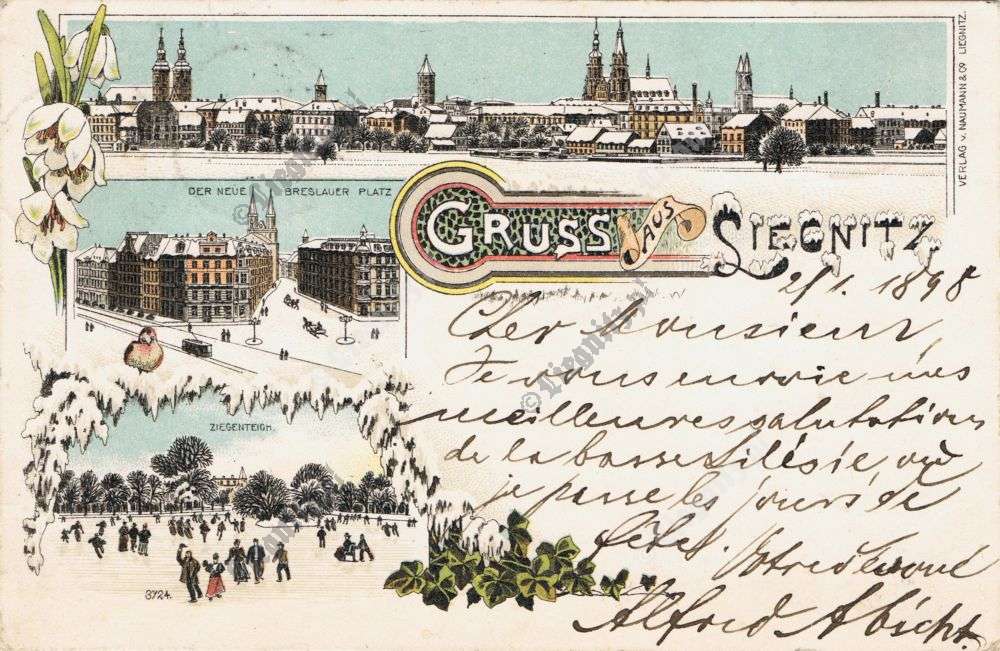 VERLAG v. NAUMANN & Co LIEGNITZ.
DER NEUE BRESLAUER PLATZ
GRUSS AUS LIEGNITZ
2/1. 1898
Cher Monsieur,
Je vous envoie mes
meilleures salutations
de la basse Silésie, où
je passe les jours de
fêtes. Votre dévoué
Alfred Abicht.
ZIEGENTEICH.
3724.
© Liegnitz.pl